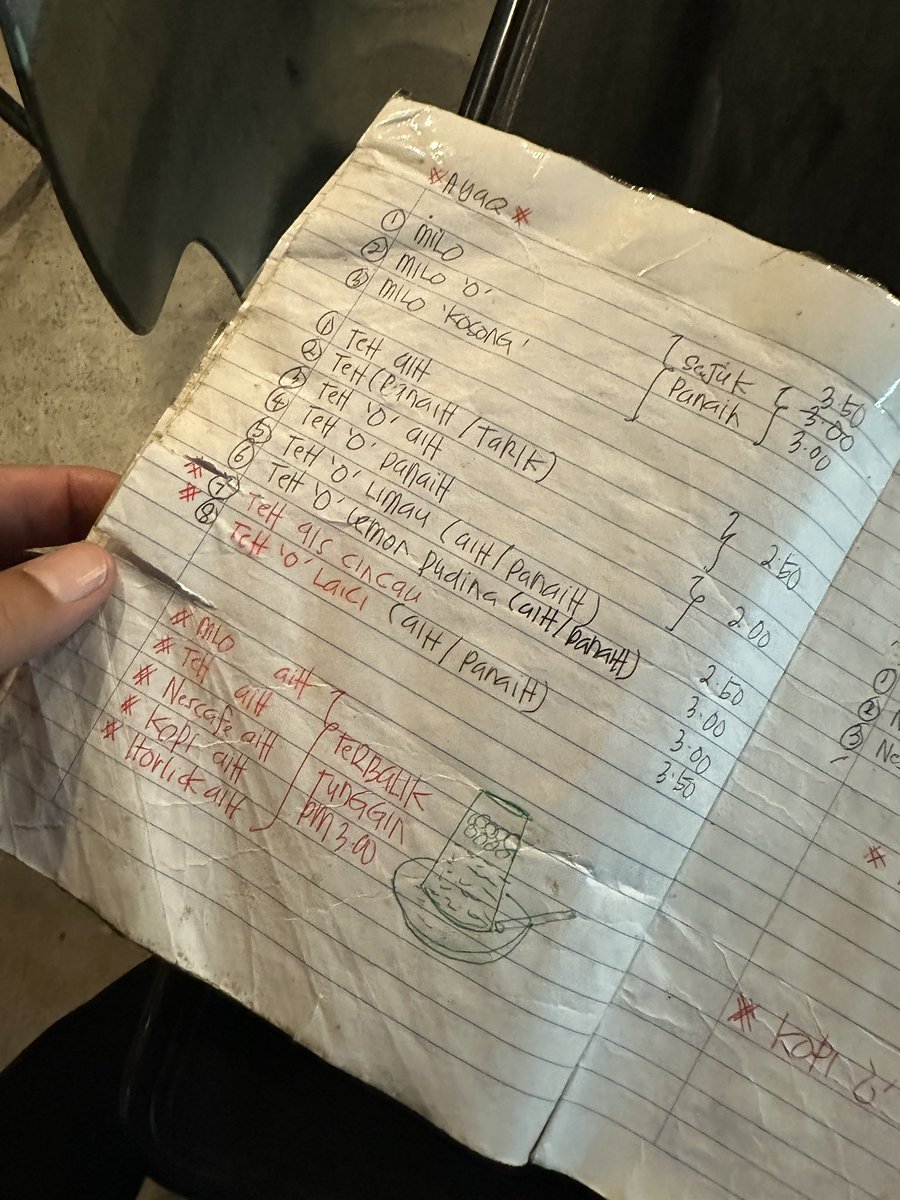 * AYAQ *
① MILO
② MILO 'O'
③ MILO 'KOSONG'
SEJUK 3.50
3.00
PANAIH 3.00
① TEH AIH
② TEH (PANAIH / TARIK)
③ TEH 'O' AIH
④ TEH 'O' PANAIH
⑤ TEH 'O' LIMAU (AIH / PANAIH)
⑥ TEH 'O' LEMON PUDINA (AIH / PANAIH)
* ⑦ TEH AIS CINCAU
* ⑧ TEH 'O' LAICI (AIH / PANAIH)
2.50
2.00
2.50
3.00
3.00
3.50
* MILO AIH
* TEH AIH
* Nescafe AIH
* KOPI AIH
* Horlick AIH
TERBALIK
TUNGGIN
RM 3.00
①
②
③ Nes
*
* KOPI